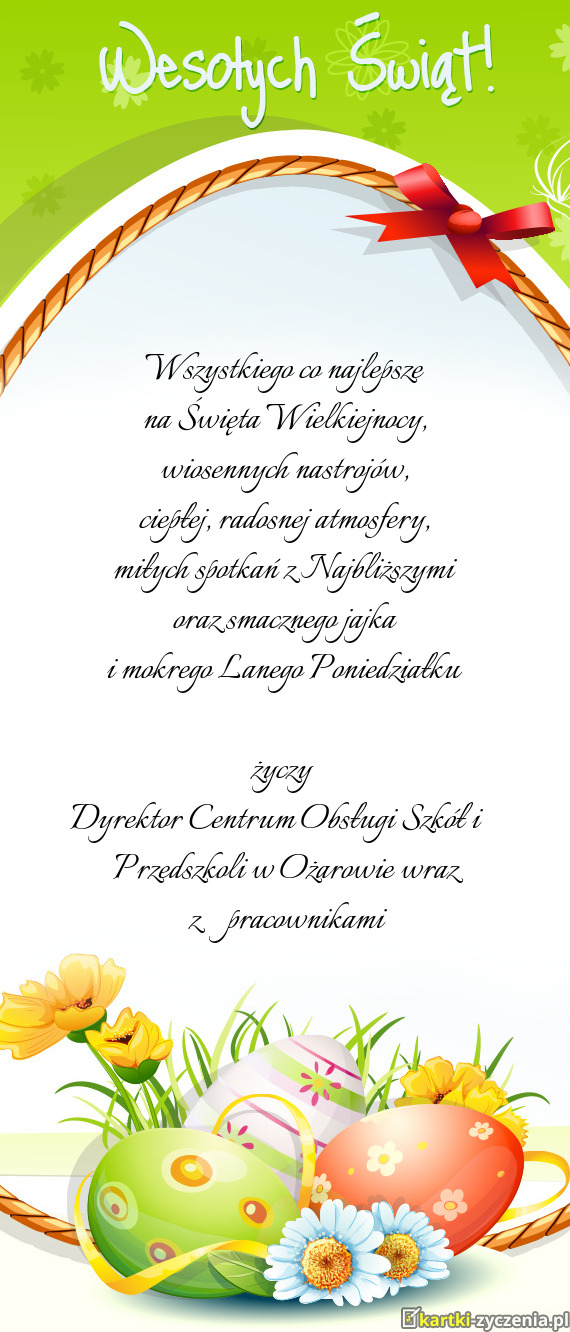 Wesołych Świąt!
Wszystkiego co najlepsze
na Święta Wielkiejnocy,
wiosennych nastrojów,
ciepłej, radosnej atmosfery,
miłych spotkań z Najbliższymi
oraz smacznego jajka
i mokrego Lanego Poniedziałku
życzy
Dyrektor Centrum Obsługi Szkół i
Przedszkoli w Ożarowie wraz
z pracownikami
kartki-zyczenia.pl